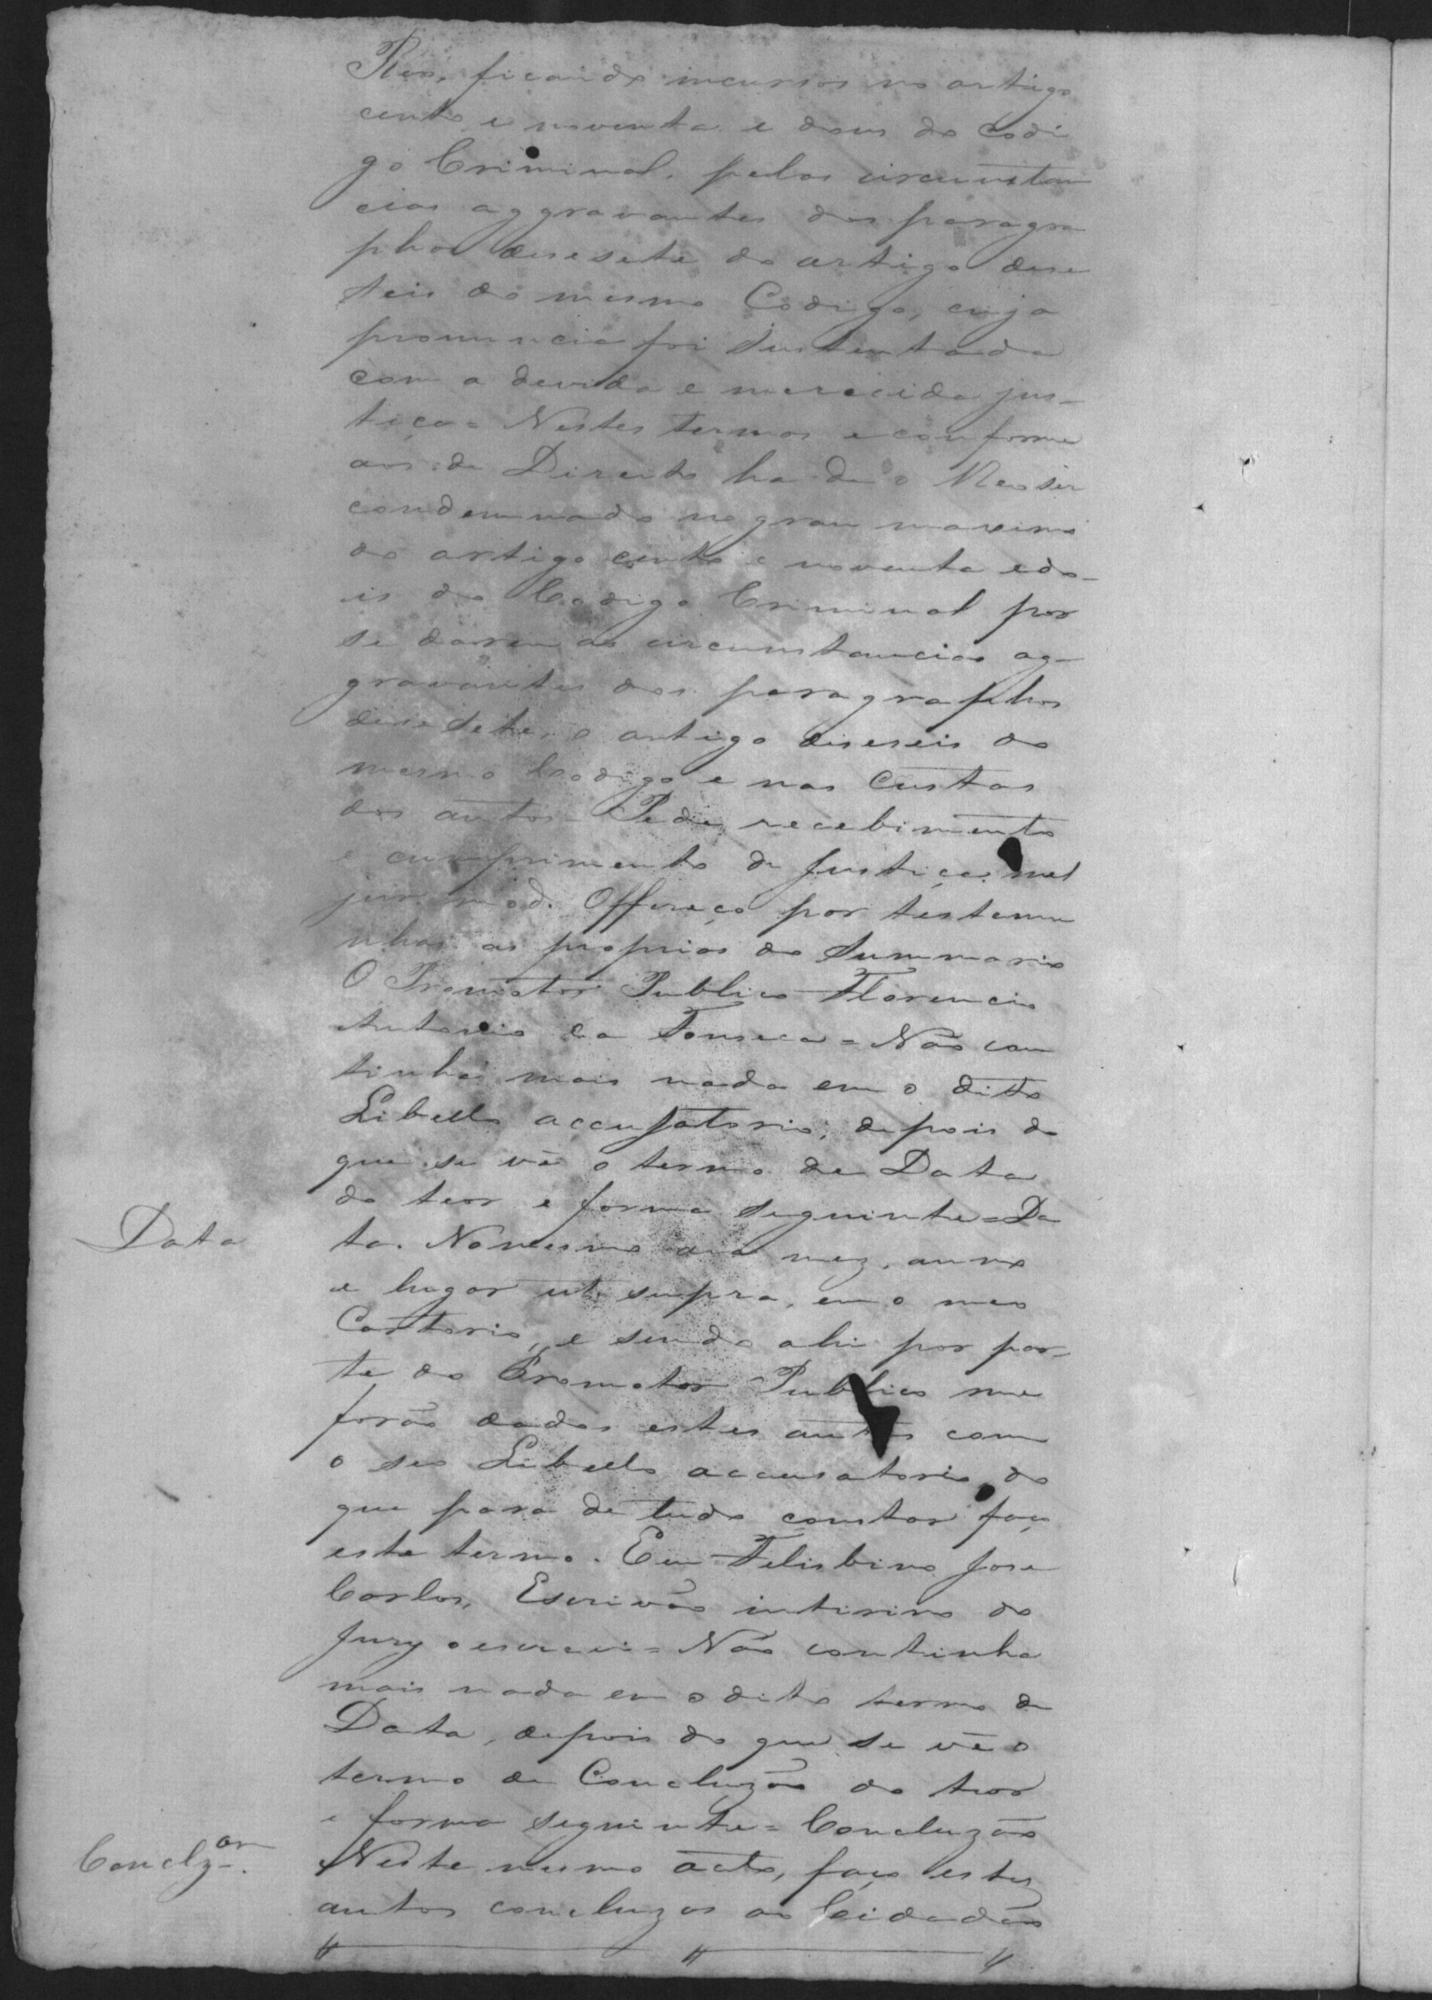 Reos, ficando incursos no artigo
cento e noventa e dous do Codi
go Criminal, pelas circunstan
cias aggravantes dos paragra
phos desesete do artigo dese
seis do mesmo Codigo, cuja
pronuncia foi sustentada
com a devida e merecida jus-
tiça = Nestes termos e conforme
aos de Direito ha de o Reo ser
condemnado no grau maximo
do artigo cento e noventa e do-
is do Codigo Criminal por
se darem as circumstancias ag-
gravantes dos paragraphos
desesete, o artigo deseseis do
mesmo Codigo e nas Custas
dos autos = Pede recebimento
e cumprimento de Justiça. mel
jur. mod. Offereço por testemu
nhas as proprias do Summario
O Promotor Publico Florencio
Antonio da Fonseca = Não con
tinha mais nada em o dito
Libello accusatorio, depois do
que se vê o termo de Data
do teor e forma seguinte = Da
Data
ta. No mesmo dia mez, anno
e lugar ut supra, em o meo
Cartorio, e sendo ahi por par-
te do Promotor Publico me
forão dados estes autos com
o seo Libello accusatorio, do
que para de tudo constar faço
este termo. Eu Felisbino Jose
Carlos, Escrivão intirino do
Jury o escrevi = Não continha
mais nada em o dito termo de
Data, depois do que se vê o
termo de Concluzão do teor
e forma seguinte = Concluzão
Conclz.am
Neste mesmo acto, faço estes
autos concluzos ao Cidadão